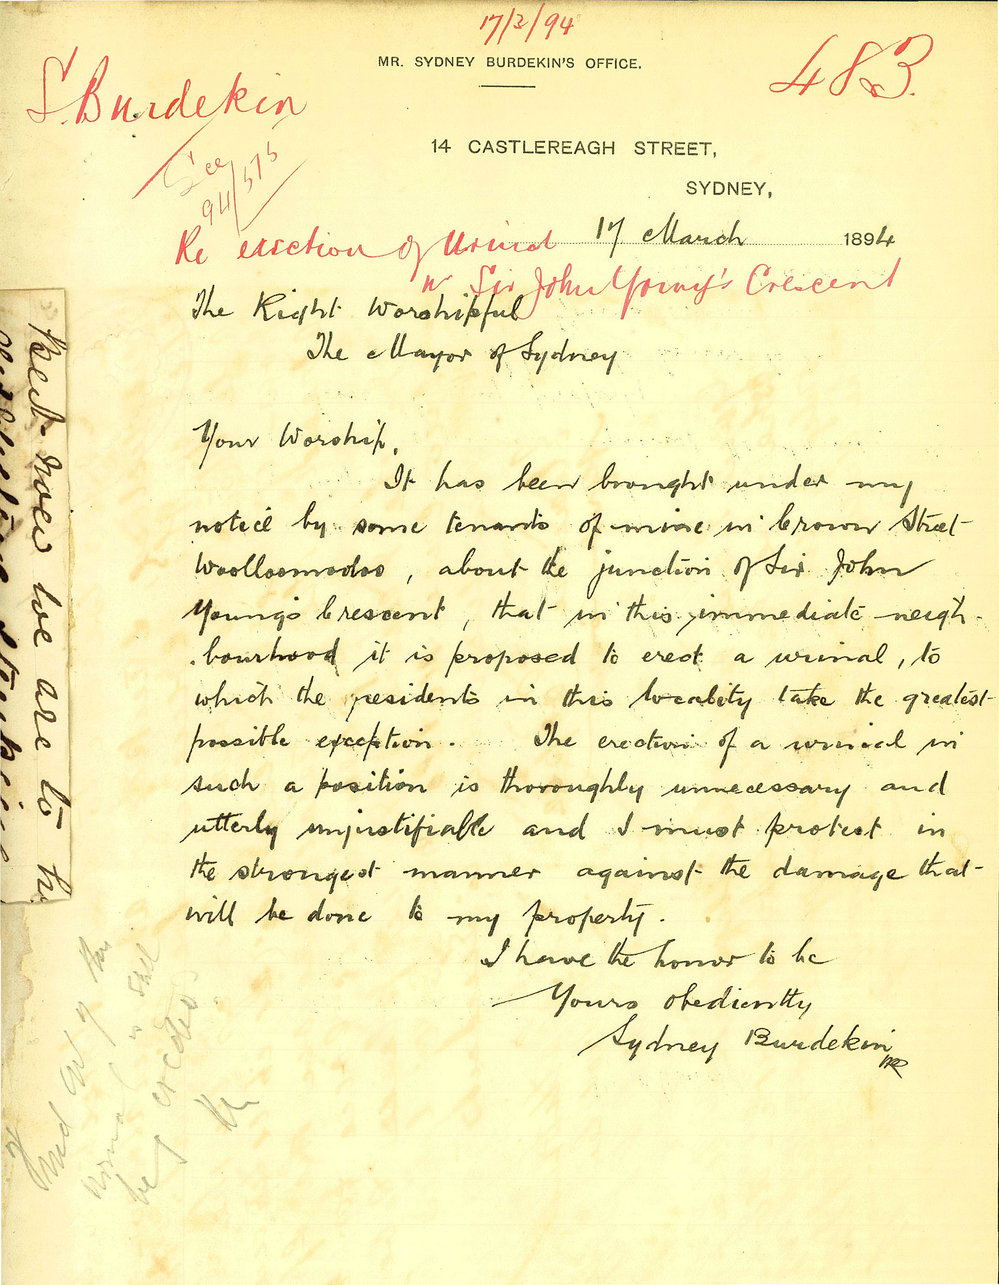 17/3/94
MR. SYDNEY BURDEKIN'S OFFICE.
483.
S. Burdekin
14 CASTLEREAGH STREET,
SYDNEY,
See
94/575
17 March 1894
Re erection of Urinal
in Sir John Young's Crescent
The Right Worshipful
The Mayor of Sydney
Your Worship,
It has been brought under my
notice by some tenants of mine in Crown Street
Woolloomooloo, about the junction of Sir John
Young's Crescent, that in this immediate neigh-
bourhood it is proposed to erect a urinal, to
which the residents in this locality take the greatest
possible exception. The erection of a urinal in
such a position is thoroughly unnecessary and
utterly unjustifiable and I must protest in
the strongest manner against the damage that
will be done to my property.
I have the honor to be
Yours obediently
Sydney Burdekin
we are to
urinal is
be erected